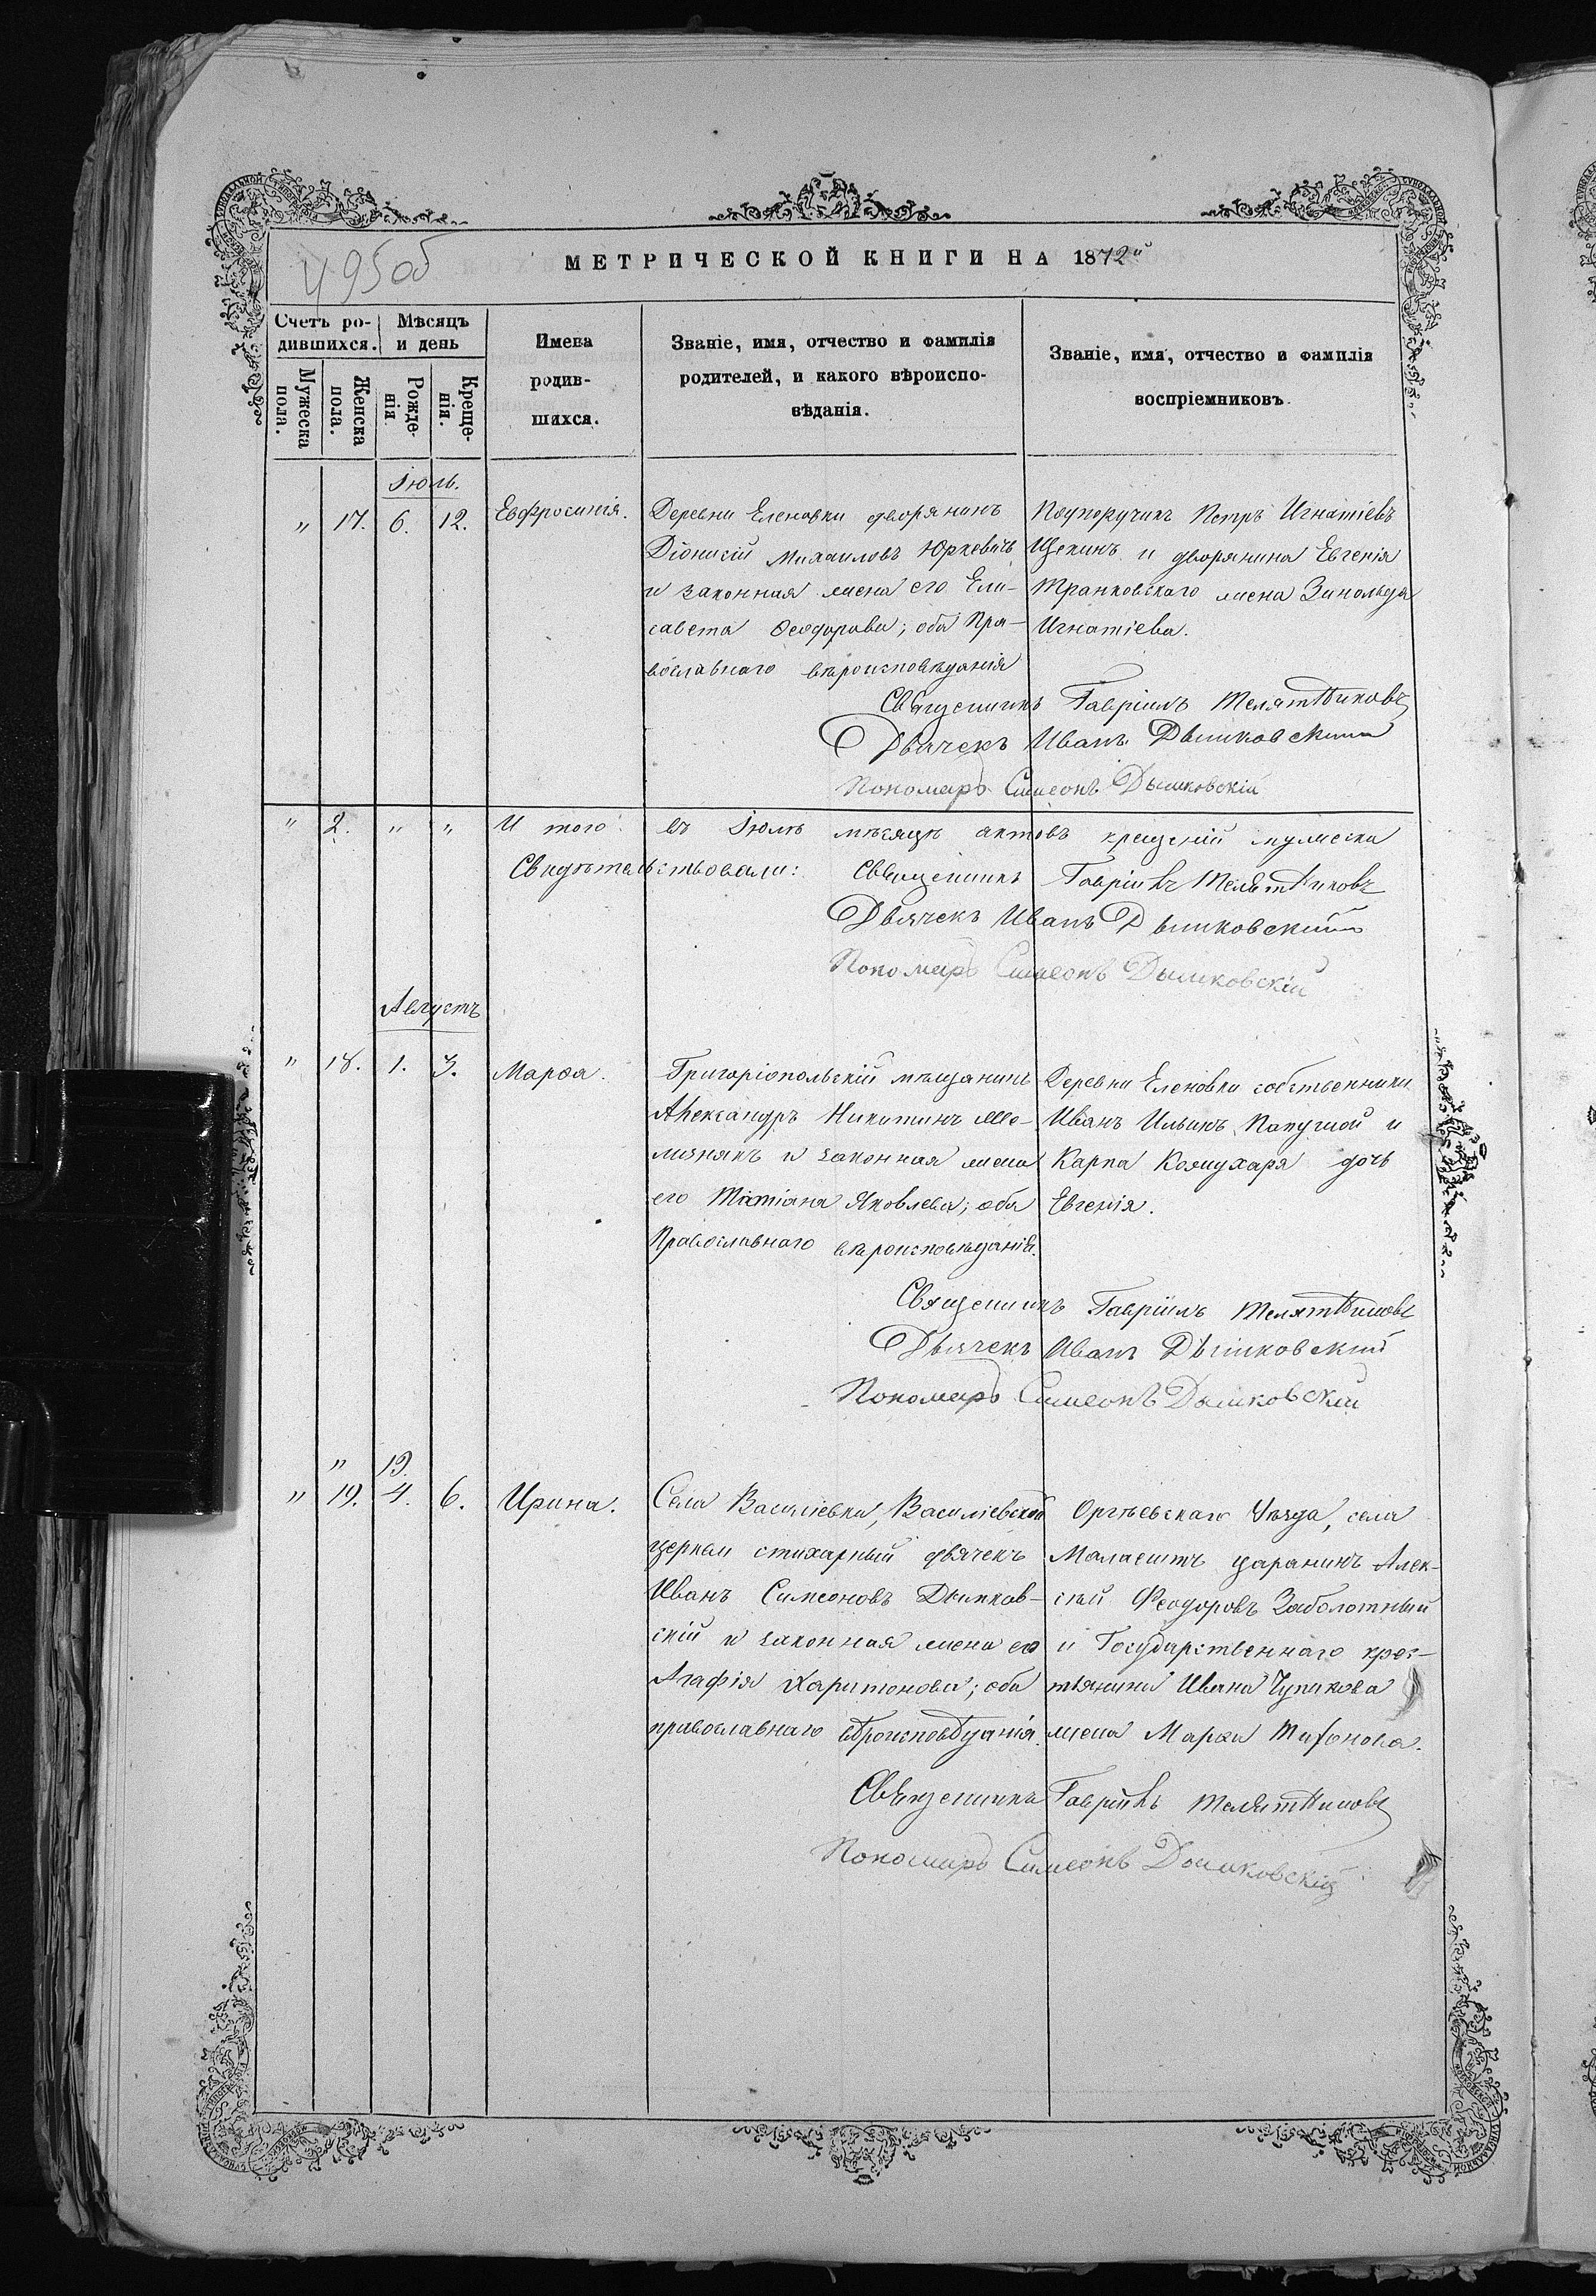 495об
МЕТРИЧЕСКОЙ КНИГИ НА 1872й
Счетъ ро-
дившихся.
Мужеска
пола.
Женска
пола.
Мѣсяцъ
и день
Рожде-
нія
Креще-
нія.
Имена
родив-
шихся.
Званіе, имя, отчество и фамилія
родителей, и какого вѣроиспо-
вѣданія.
Званіе, имя, отчество и фамилія
воспріемниковъ.
Іюль.
" 17. 6. 12. Евфросинія.
Деревни Еленовки дворянинъ
Діонисій Михаиловъ Юркевичъ
и законная жена его Ели-
савета Ѳеодорова; оба Пра-
вославнаго вѣроисповѣданія
Подпоручикъ Петръ Игнатіевъ
Щекинъ и дворянина Евгенія
Транковскаго жена Зинольда
Игнатіева.
Священникъ Гавріилъ Телятниковъ
Дьячекъ Иванъ Дымковскій
Пономарь Симеонъ Дымковскій
" 2. " " И того въ Іюлѣ мѣсяцѣ актовъ крещеній мужеска
Свидѣтельствовали: Священникъ Гавріилъ Телятниковъ
Дьячекъ Иванъ Дымковскій
Пономарь Симеонъ Дымковскій
Августъ
" 18. 1. 3. Марѳа.
Григоріопольскій мѣщанинъ
Александръ Никитинъ
и законная жена
его Татіана Яковлева; оба
Православнаго вѣроисповѣданія.
Деревни Еленовки собственники
Иванъ Ильинъ Папушой и
Карпа Кожухаря дочь
Евгенія.
Священникъ Гавріилъ Телятниковъ
Дьячекъ Иванъ Дымковскій
Пономарь Симеонъ Дымковскій
" 19.
" 19. 4. 6. Ирина.
Села Василіевки, Василіевской
церкви стихарный дьячекъ
Иванъ Симеоновъ Дымков-
скій и законная жена его
Агафія Харитонова; оба
православнаго вѣроисповѣданія.
Оргѣевскаго Уѣзда, села
Малаештъ царанинъ Алек-
сѣй Феодоровъ Заболотный
и Государственнаго крес-
тьянина Ивана Чупикова
жена Марѳа Тифонова.
Священникъ Гавріилъ Телятниковъ
Пономарь Симеонъ Дымковскій